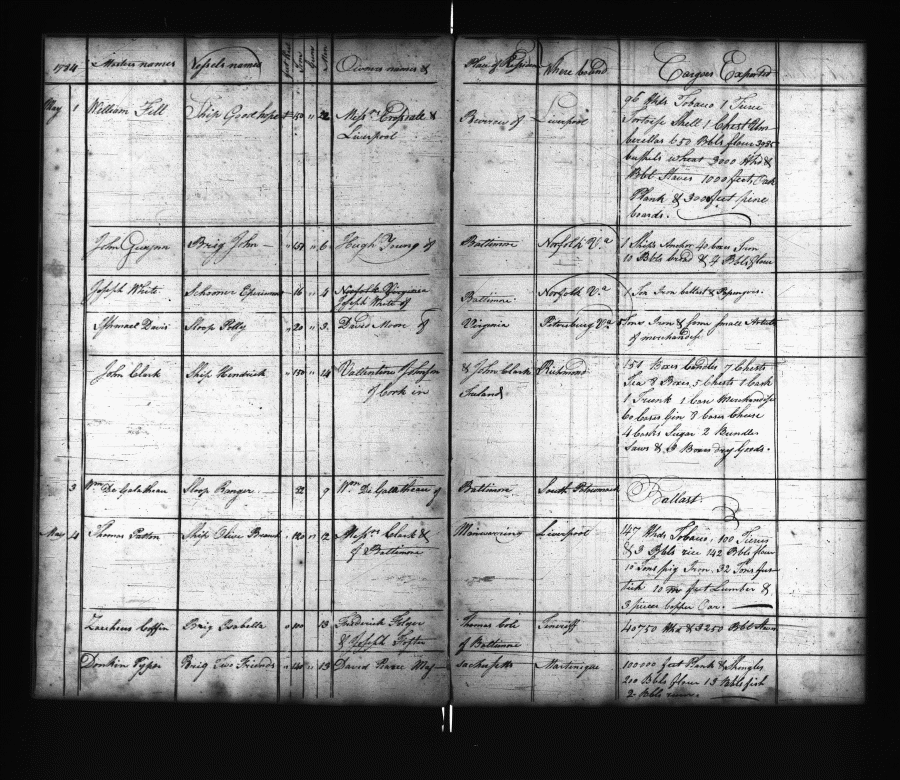 1784 Masters names Vessels names Guns Tons Men Owners names & Place of Where bound Cargoes Exported
May 1 William Fell Ship Good hope 22 Messrs & of Liverpool 96 Hhds Tobacco 1 Tierce
Liverpool Tortoise Shell 1 Chest Um
berellas 650 Bbls flour 3055
bushels wheat 3000 Hhd &
Bbl Staves 1000 feet Oak
Plank & 300 feet pine
boards.
John Brig John 6 Hugh Young of Baltimore Norfolk Va 1 Ships Anchor 40 boxes Iron
10 Bbls bread & 4 Bbls flour
Joseph White Schooner 16 4 Norfolk Virginia Baltimore Norfolk Va 1 Ton Iron ballast &
Joseph White of
Ishmael Davis Sloop Polly 20 3 David Moore of Virginia Petersburg Va 5 Tons Iron & some small Articles
of merchandise
John Clark Ship Hendrick 150 14 & John Clark Richmond 151 Boxes Candles 7 Chests
of Cork in Ireland Tea 8 Boxes 5 Chests 1 Cask
1 Trunk 1 Case Merchandise
60 Cases Gin 8 Cases Cheese
4 Casks Sugar 2 Bundles
Saws & 3 Boxes dry Goods.
3 Wm De Galatheau Sloop Ranger 22 9 Wm De Galatheau of Baltimore South Potowmack Ballast
May 4 Thomas Patton Ship Olive Branch 120 12 Messrs Clark & Liverpool 147 Hhds Tobacco, 100 Tierces
of Baltimore & 3 Bbls rice 142 Bbls flour
10 Tons pig Iron. 32 Tons fus
tick 10 m feet Lumber &
3 pieces Copper Oar.
Zaccheus Coffin Brig Isabella 100 13 Frederick Folger Thomas Cole Teneriff 40750 Hhd & 3250 Bbl Staves
& Joseph of Baltimore
Brig Two Friends 140 13 David Pearce Mas sachusetts Martinique 100000 feet Plank & Shingles
200 Bbls flour 13 Bbls fish
2 Bbls